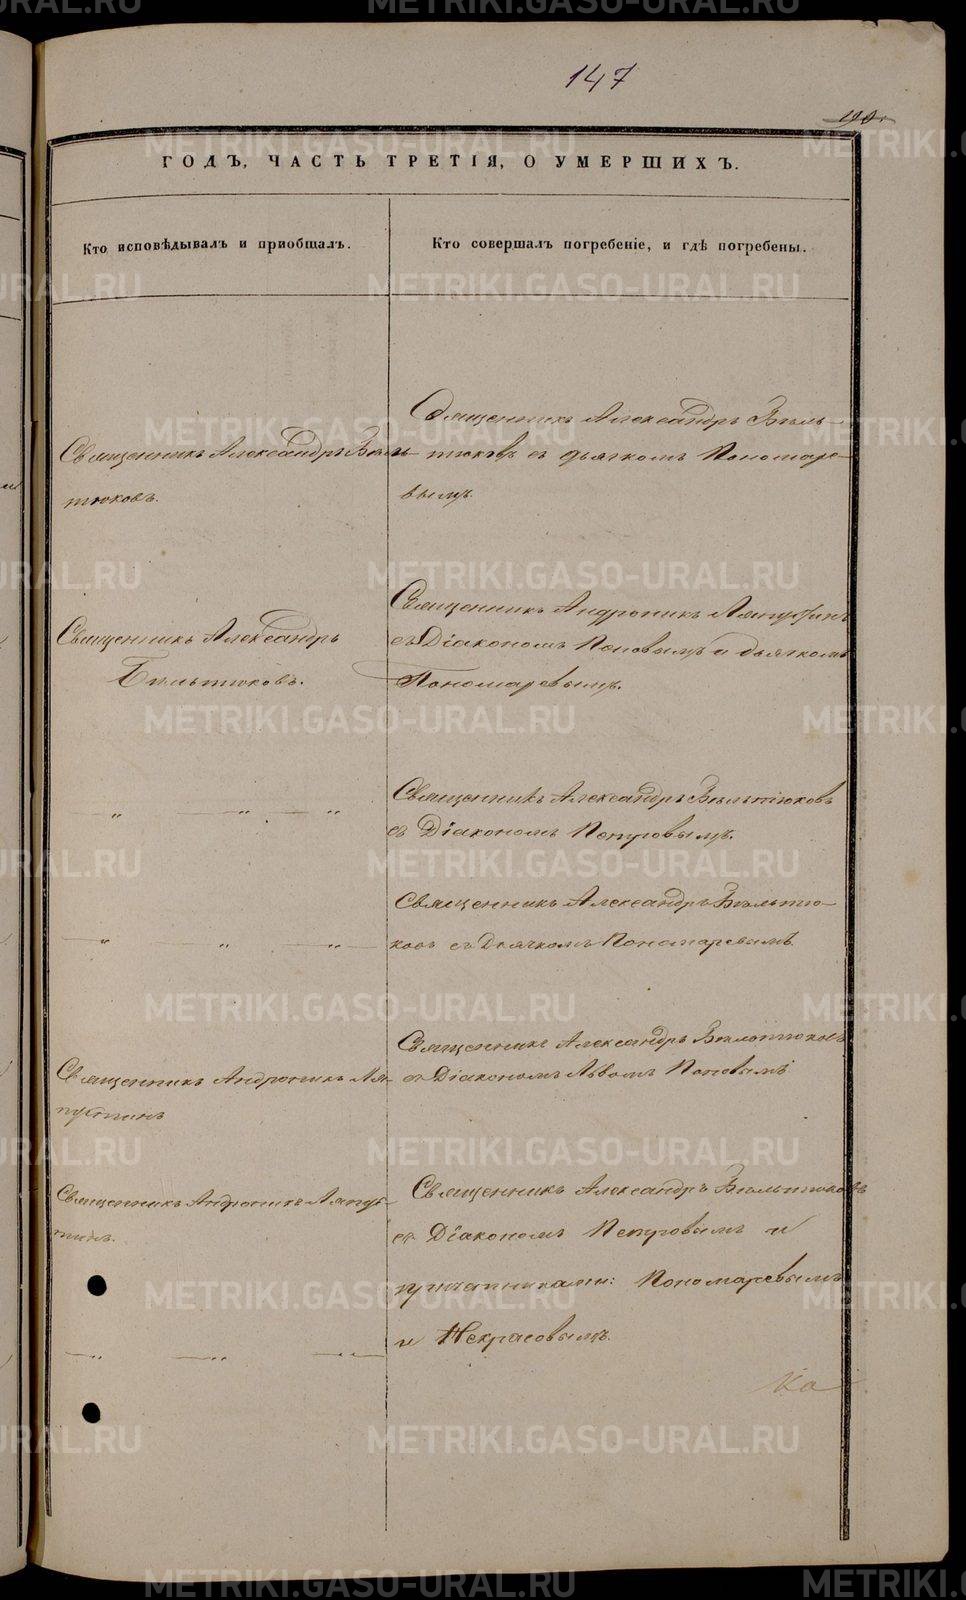 147
190
ГОДЪ, ЧАСТЬ ТРЕТІЯ, О УМЕРШИХЪ.
Кто исповѣдывалъ и пріобщалъ.
Кто совершалъ погребеніе, и гдѣ погребены.
Священникъ Александръ Бѣль-
тюковъ.
Священникъ Александръ Бѣль-
тюковъ съ дьячкомъ Пономаре-
вымъ.
Священникъ Александръ
Бѣльтюковъ.
Священникъ Андроникъ Ляпустинъ
съ Діакономъ Поповымъ и дьячкомъ
Пономаревымъ.
— „ — „ — „
Священникъ Александръ Бѣльтюковъ
съ Діакономъ Петровымъ.
— „ „ — „ —
Священникъ Александръ Бѣльтю-
ковъ съ Дьячкомъ Пономаревымъ
Священникъ Андроникъ Ля-
пустинъ
Священникъ Александръ Бѣльтюковъ
съ Діакономъ Львомъ Поповымъ
Священникъ Андроникъ Ляпус-
тинъ.
Священникъ Александръ Бѣльтюковъ
съ Діакономъ Петровымъ и
причетниками: Пономаревымъ
и Некрасовымъ.
— „ — — „ — — „ —
Ко
METRIKI.GASO-URAL.RU